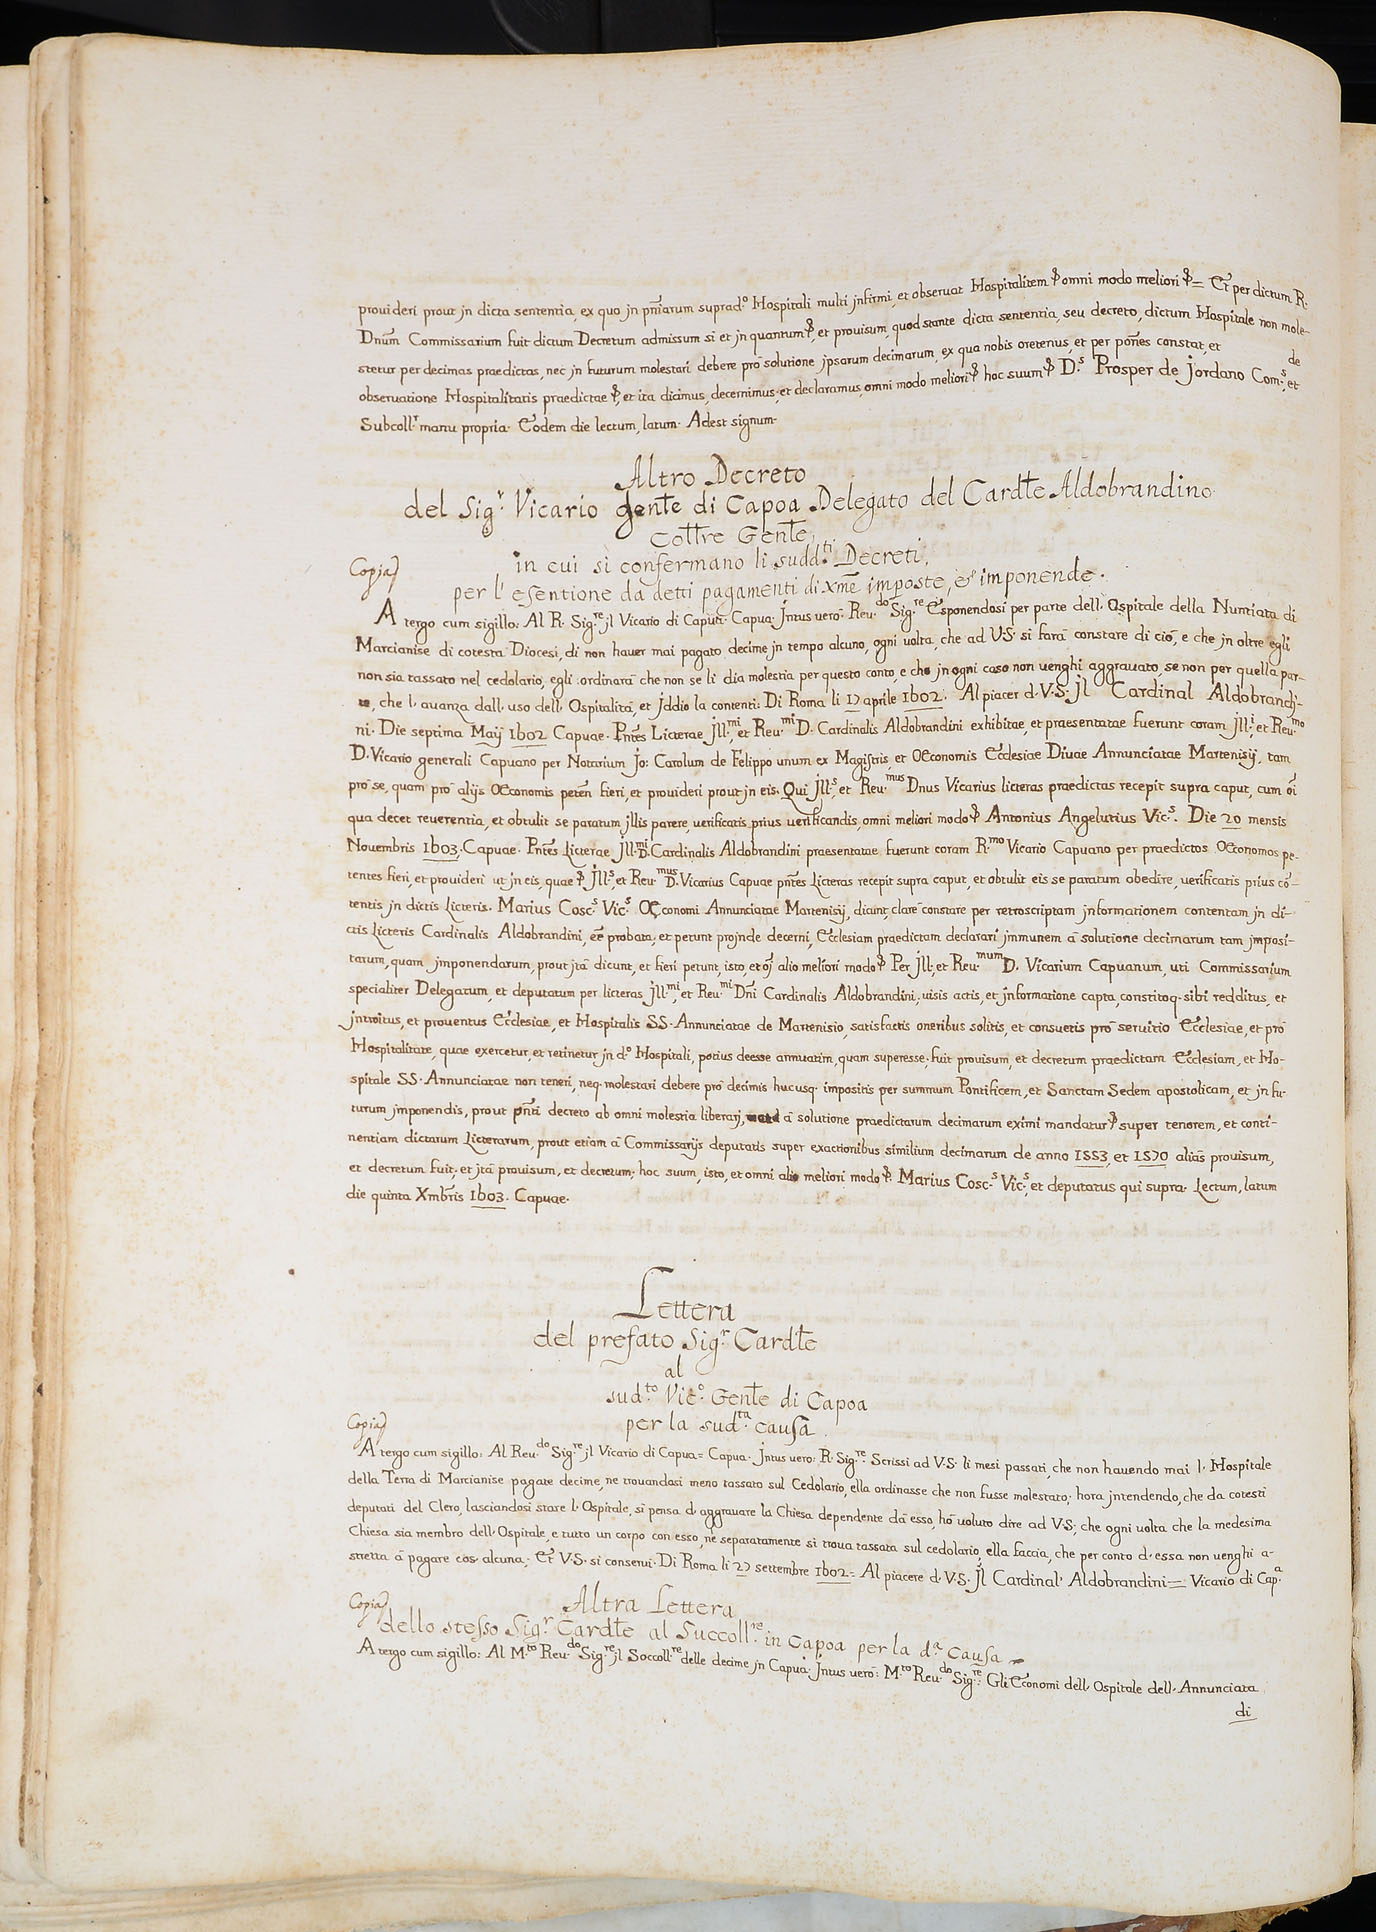 prouideri prout jn dicta sententia, ex quo jn pn̄iarum suprad.º Hospitali multi jnfirmi, et obseruat Hospitalitem ꝑ omni modo meliori ꝑ = Et per dictum R.
Dnūm Commissarium fuit dictum Decretum admissum si et jn quantum ꝑ, et prouisum, quod stante dicta sententia, seu decreto, dictum Hospitale non mole-
stetur per decimas praedictas, nec jn futurum molestari debere prō solutione jpsarum decimarum, ex qua nobis oretenus, et per pōnes constat, et de
obseruatione Hospitalitatis praedictae ꝑ, et ita dicimus, decernimus, et declaramus, omni modo meliori ꝑ hoc suum ꝑ D.s Prosper de Jordano Com.s, et
Subcoll.r manu propria. Eodem die lectum, latum. Adest signum.
Altro Decreto
del Sig.r Vicario gentē di Capoa Delegato del Cardtē Aldobrandino
Cottre Gentē,
in cui si confermano li sudd.ti Decreti,
Copia
per l'esentione da detti pagamenti di xmē imposte, et imponende.
A tergo cum sigillo: Al R. Sig.re jl Vicario di Capua. Capua. Jntus uero: Reu.do Sig.re Esponendosi per parte dell'Ospitale della Nuntiata di
Marcianise di cotesta Diocesi, di non hauer mai pagato decime jn tempo alcuno, ogni volta, che ad V.S. si farā constare di ciō, e che jn oltre egli
non sia tassato nel cedolario, egli ordinarā che non se li dia molestia per questo conto, e che jn ogni caso non uenghi aggrauato, se non per quella par-
te, che l'auanza dall'uso dell'Ospitalitā, et Jddio la contenti: Di Roma li 17 aprile 1602. Al piacer d. V.S. Jl Cardinal Aldobrandj-
ni. Die septima Maij 1602 Capuae. Pntēs Licterae Jll.mi, et Reu.mi D. Cardinalis Aldobrandini exhibitae, et praesentatae fuerunt coram Jll.i, et Reu.mo
D. Vicario generali Capuano per Notarium Jo: Carolum de Felippo unum ex Magistris, et OEconomis Ecclesiae Diuae Annunciatae Martenisij, tam
prō se, quam prō alijs OEconomis petēn fieri, et prouideri prout jn eis. Qui Jll.s, et Reu.mus Dnus Vicarius licteras praedictas recepit supra caput, cum oī
qua decet reuerentia, et obtulit se paratum jllis parere, uerificatis prius uerificandis, omni meliori modo ꝑ Antonius Angelutius Vic.s. Die 20 mensis
Nouembris 1603. Capuae. Pntēs Licterae Jll.mi D. Cardinalis Aldobrandini praesentatae fuerunt coram R.mo Vicario Capuano per praedictos OEconomos pe-
tentes fieri, et prouideri ut jn eis, quae ꝑ Jll.s, et Reu.mus D. Vicarius Capuae pntēs Licteras recepit supra caput, et obtulit eis se paratum obedire, uerificatis prius cō-
tentis jn dictis Licteris. Marius Cosc.s Vic.s OEconomi Annunciatae Martenisij, dicunt, clarē constare per retroscriptam jnformationem contentam jn di-
ctis Licteris Cardinalis Aldobrandini, eē probata, et petunt projnde decerni, Ecclesiam praedictam declarari jmmunem ā solutione decimarum tam jmposi-
tarum, quam jmponendarum, prout jtā dicunt, et fieri petunt, isto, et oj alio meliori modo ꝑ Per Jll, et Reu.mum D. Vicarium Capuanum, uti Commissarium
specialiter Delegatum, et deputatum per licteras Jll.mi, et Reu.mi Dnī Cardinalis Aldobrandini, uisis actis, et jnformatione capta, constitoq. sibi redditus, et
jntroitus, et prouentus Ecclesiae, et Hospitalis SS. Annunciatae de Martenisio, satisfactis oneribus solitis, et consuetis prō seruitio Ecclesiae, et prō
Hospitalitate, quae exercetur, et retinetur jn d.º Hospitali, potius deesse annuatim, quam superesse; fuit prouisum, et decretum praedictam Ecclesiam, et Ho-
spitale SS. Annunciatae non teneri, neq. molestari debere prō decimis hucusq. impositis per summum Pontificem, et Sanctam Sedem apostolicam, et jn fu-
turum jmponendis, prout pntī decreto ab omni molestia liberarj, ā solutione praedictarum decimarum eximi mandatur ꝑ super tenorem, et conti-
nentiam dictarum Licterarum, prout etiam ā Commissarijs deputatis super exactionibus similium decimarum de anno 1553, et 1570 aliās prouisum,
et decretum fuit; et jtā prouisum, et decretum; hoc suum, isto, et omni alio meliori modo ꝑ. Marius Cosc.s Vic.s, et deputatus qui supra. Lectum, latum
die quinta Xmbris 1603. Capuae.
Lettera
del prefato Sig.r Cardtē
al
sud.to Vic.º Gentē di Capoa
per la sud.ta causa
Copia
A tergo cum sigillo: Al Reu.do Sig.re jl Vicario di Capua = Capua. Jntus uero: R. Sig.re. Scrissi ad V.S. li mesi passati, che non hauendo mai l'Hospitale
della Terra di Marcianise pagate decime, ne trouandosi meno tassato sul Cedolario, ella ordinasse che non fusse molestato; hora jntendendo, che da cotesti
deputati del Clero, lasciandosi stare l'Ospitale, si pensa d'aggrauare la Chiesa dependente dā esso, hō uoluto dire ad V.S; che ogni uolta che la medesima
Chiesa sia membro dell'Ospitale, e tutto un corpo con esso, nē separatamente si troua tassata sul cedolario, ella faccia, che per conto d'essa non uenghi a-
stretta ā pagare cos'alcuna; Et V.S. si conserui. Di Roma li 27 settembre 1602 = Al piacere d. V.S. Jl Cardinal' Aldobrandini = Vicario di Cap.a
Copia
Altra Lettera
dello stesso Sig.r Cardtē al Succoll.re in Capoa per la d.a Causa
A tergo cum sigillo: Al M.to Reu.do Sig.re jl Soccoll.re delle decime jn Capua. Jntus uerō: M.to Reu.do Sig.re. Gli Economi dell'Ospitale dell'Annunciata
di